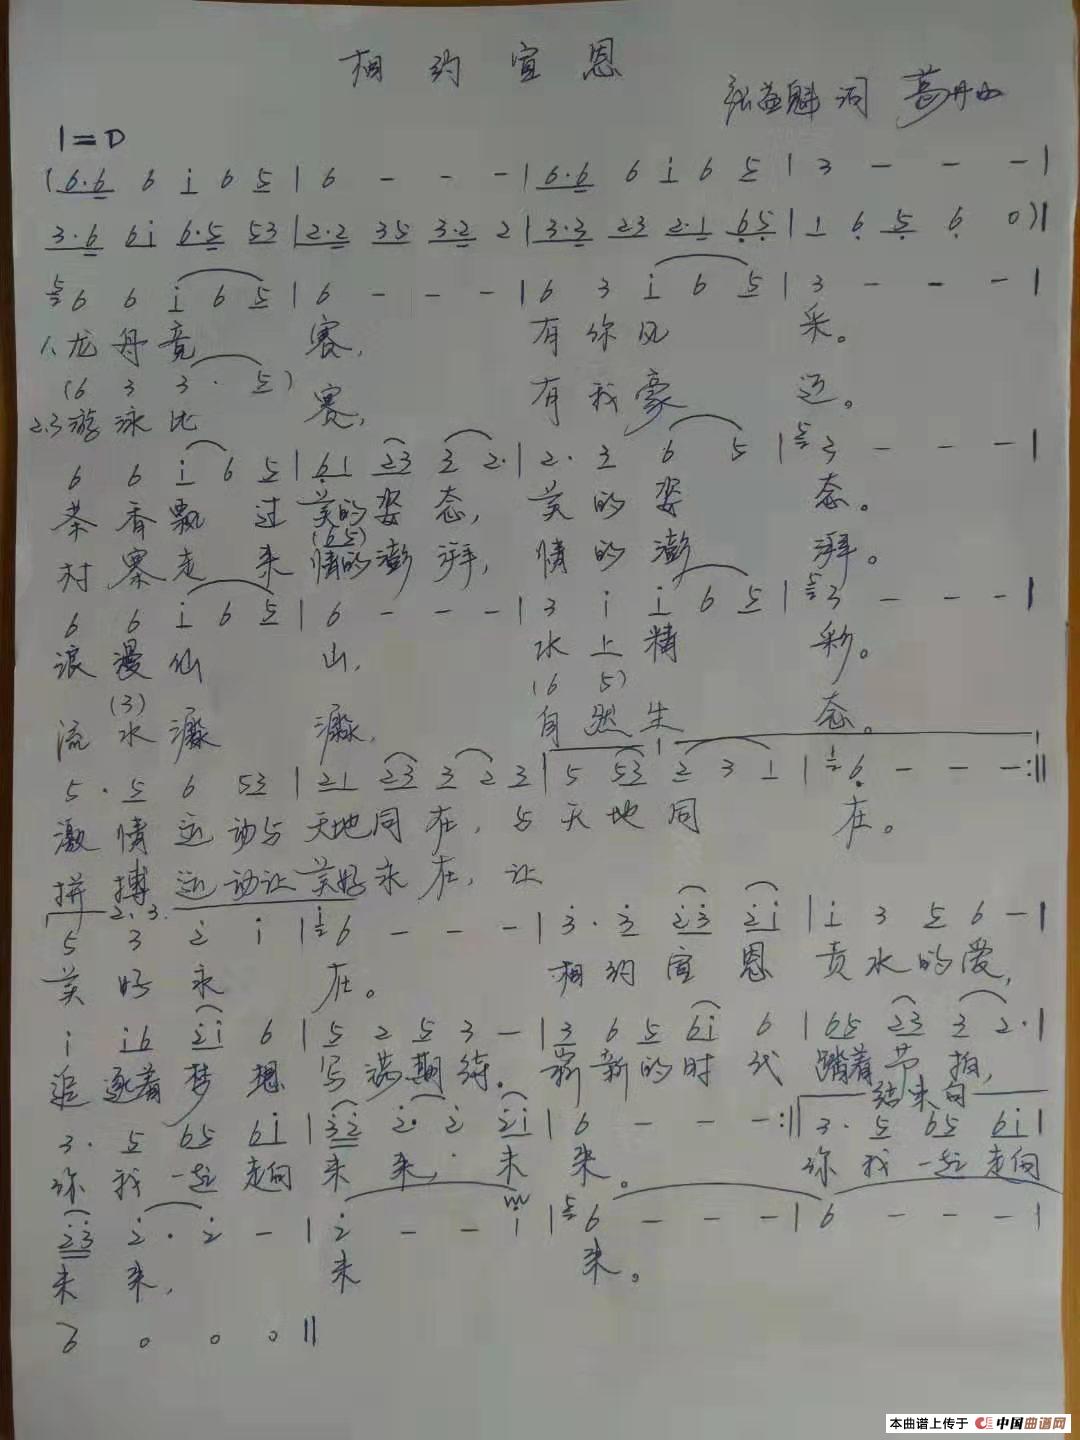 相约宣恩
张益魁 词 葛丹
1=D
(6·6 6 i 6 5 | 6 - - - | 6·6 6 i 6 5 | 3 - - - |
3·6 6i 6·5 53 | 2·2 35 3·2 2 | 3·3 23 2·1 65 | 1 6 5 6 0)|
5 6 6 i 6 5 | 6 - - - | 6 3 i 6 5 | 3 - - - |
1、龙舟竞 赛, 有你风 采。
(6 3 3 · 5)
2.3游泳比 赛, 有我豪 迈。
6 6 i 6 5 | 61 23 3 2· | 2· 3 6 5 | 5 3 - - - |
茶香飘 过 美的姿 态, 美的姿 态。
(65)
村寨走 来 情的澎 湃, 情的澎 湃。
6 6 i 6 5 | 6 - - - | 3 i i 6 5 | 5 3 - - - |
浪漫仙 山, 水上精 彩。
(3) (6 5)
流水潺 潺, 自然生 态。
1
5 · 5 6 53 | 21 23 3 2 3 | 5 53 2 3 1 | 1 6 - - - :||
激情运动与 天地同 在, 与天地同 在。
拼搏运动让 美好永 在, 让
2、3.
5 3 2 i | i 6 - - - | 3 · 3 23 2i | i 3 5 6 - |
美好永 在。 相约宣恩 贡水的爱,
i i6 2i 6 | 5 2 5 3 - | 3 6 5 6i 6 | 65 23 3 2· |
追逐着梦想 写满期待. 崭新的时代 踏着节 拍,
结束句
3· 5 65 6i | 32 2· 2 2i | 6 - - - :|| 3· 5 65 6i |
你我一起走向 未来, 未 来。 你我一起走向
23 2 · 2 - | 2 - - i | 5 6 - - - | 6 - - - |
未来, 未 来。
6 0 0 0 ||
本曲谱上传于 中国曲谱网